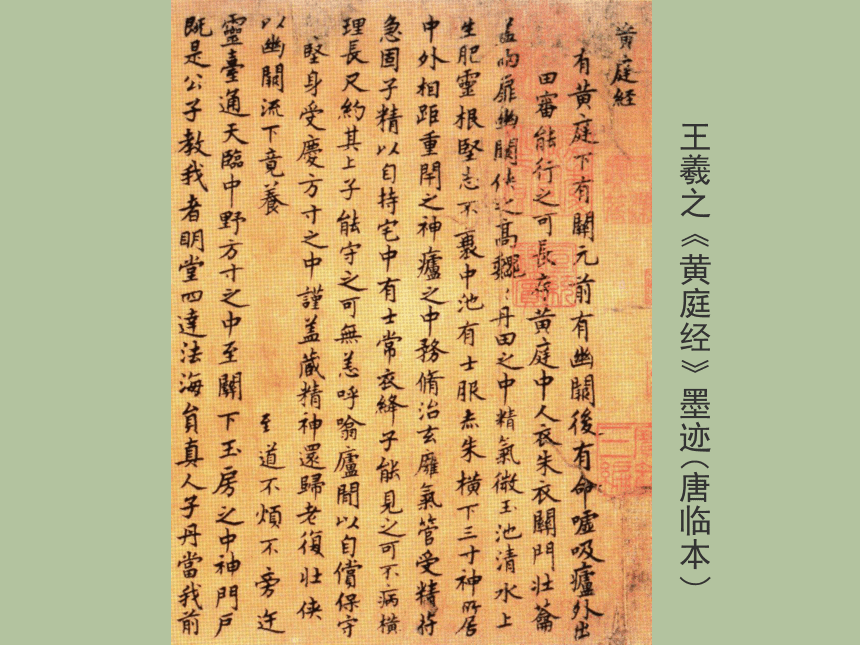 王羲之《黄庭经》墨迹(唐临本)
黄庭經
有黄庭下有關元前有幽闕後有命噓吸廬外出
田審能行之可長存黄庭中人衣朱衣關門壮籥
盖兩扉幽關侠之高巍:丹田之中精氣微玉池清水上
生肥靈根堅志不衰中池有士服赤朱横下三寸神所居
中外相距重閇之神廬之中務脩治玄廱氣管受精符
急固子精以自持宅中有士常衣絳子能見之可不病横
理長尺約其上子能守之可無恙呼噏廬間以自償保守
堅身受慶方寸之中謹盖藏精神還歸老復壮侠
以幽闕流下竟養 至道不煩不旁迕
靈臺通天臨中野方寸之中至關下玉房之中神門户
既是公子教我者明堂四達法海員真人子丹當我前